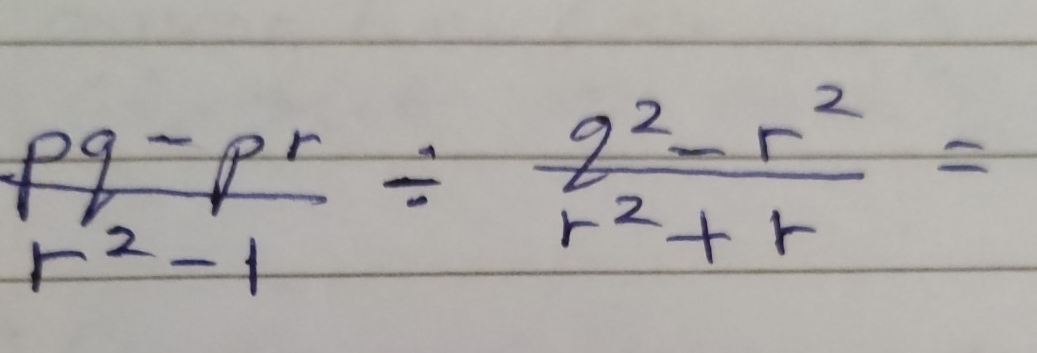 pq - pr / r² - 1 ÷ q² - r² / r² + r =